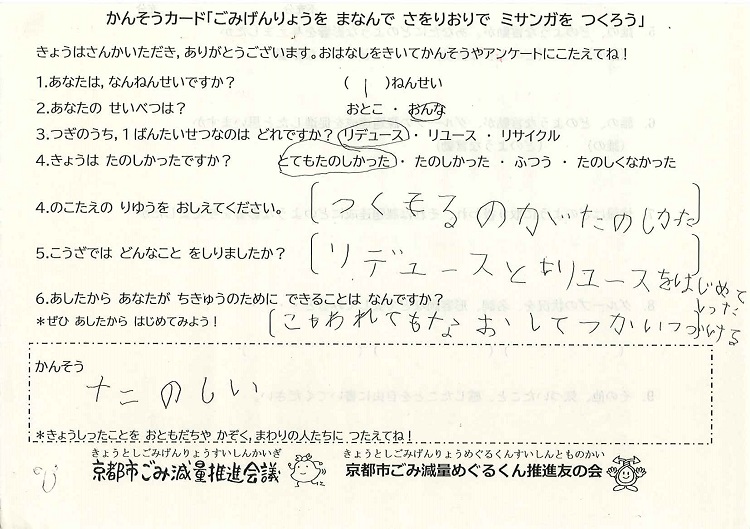 かんそうカード「ごみげんりょうを まなんで さをりおりで ミサンガを つくろう」
きょうはさんかいただき,ありがとうございます。おはなしをきいてかんそうやアンケートにこたえてね！
1.あなたは,なんねんせいですか？ （ 1 ）ねんせい
2.あなたの せいべつは？ おとこ ・ おんな
3.つぎのうち,1ばんたいせつなのは どれですか？ リデュース ・ リユース ・ リサイクル
4.きょうは たのしかったですか？ とてもたのしかった ・ たのしかった ・ ふつう ・ たのしくなかった
4.のこたえの りゆうを おしえてください。 つくるのがたのしかた
5.こうざでは どんなこと をしりましたか？ リデュースとリユースをはじめて
しった
6.あしたから あなたが ちきゅうのために できることは なんですか？
*ぜひ あしたから はじめてみよう！ こわれてもなおしてつかいつづける
かんそう
たのしい
*きょうしったことを おともだちや かぞく,まわりの人たちに つたえてね！
きょうとしごみげんりょうすいしんかいぎ きょうとしごみげんりょうめぐるくんすいしんとものかい
京都市ごみ減量推進会議 京都市ごみ減量めぐるくん推進友の会